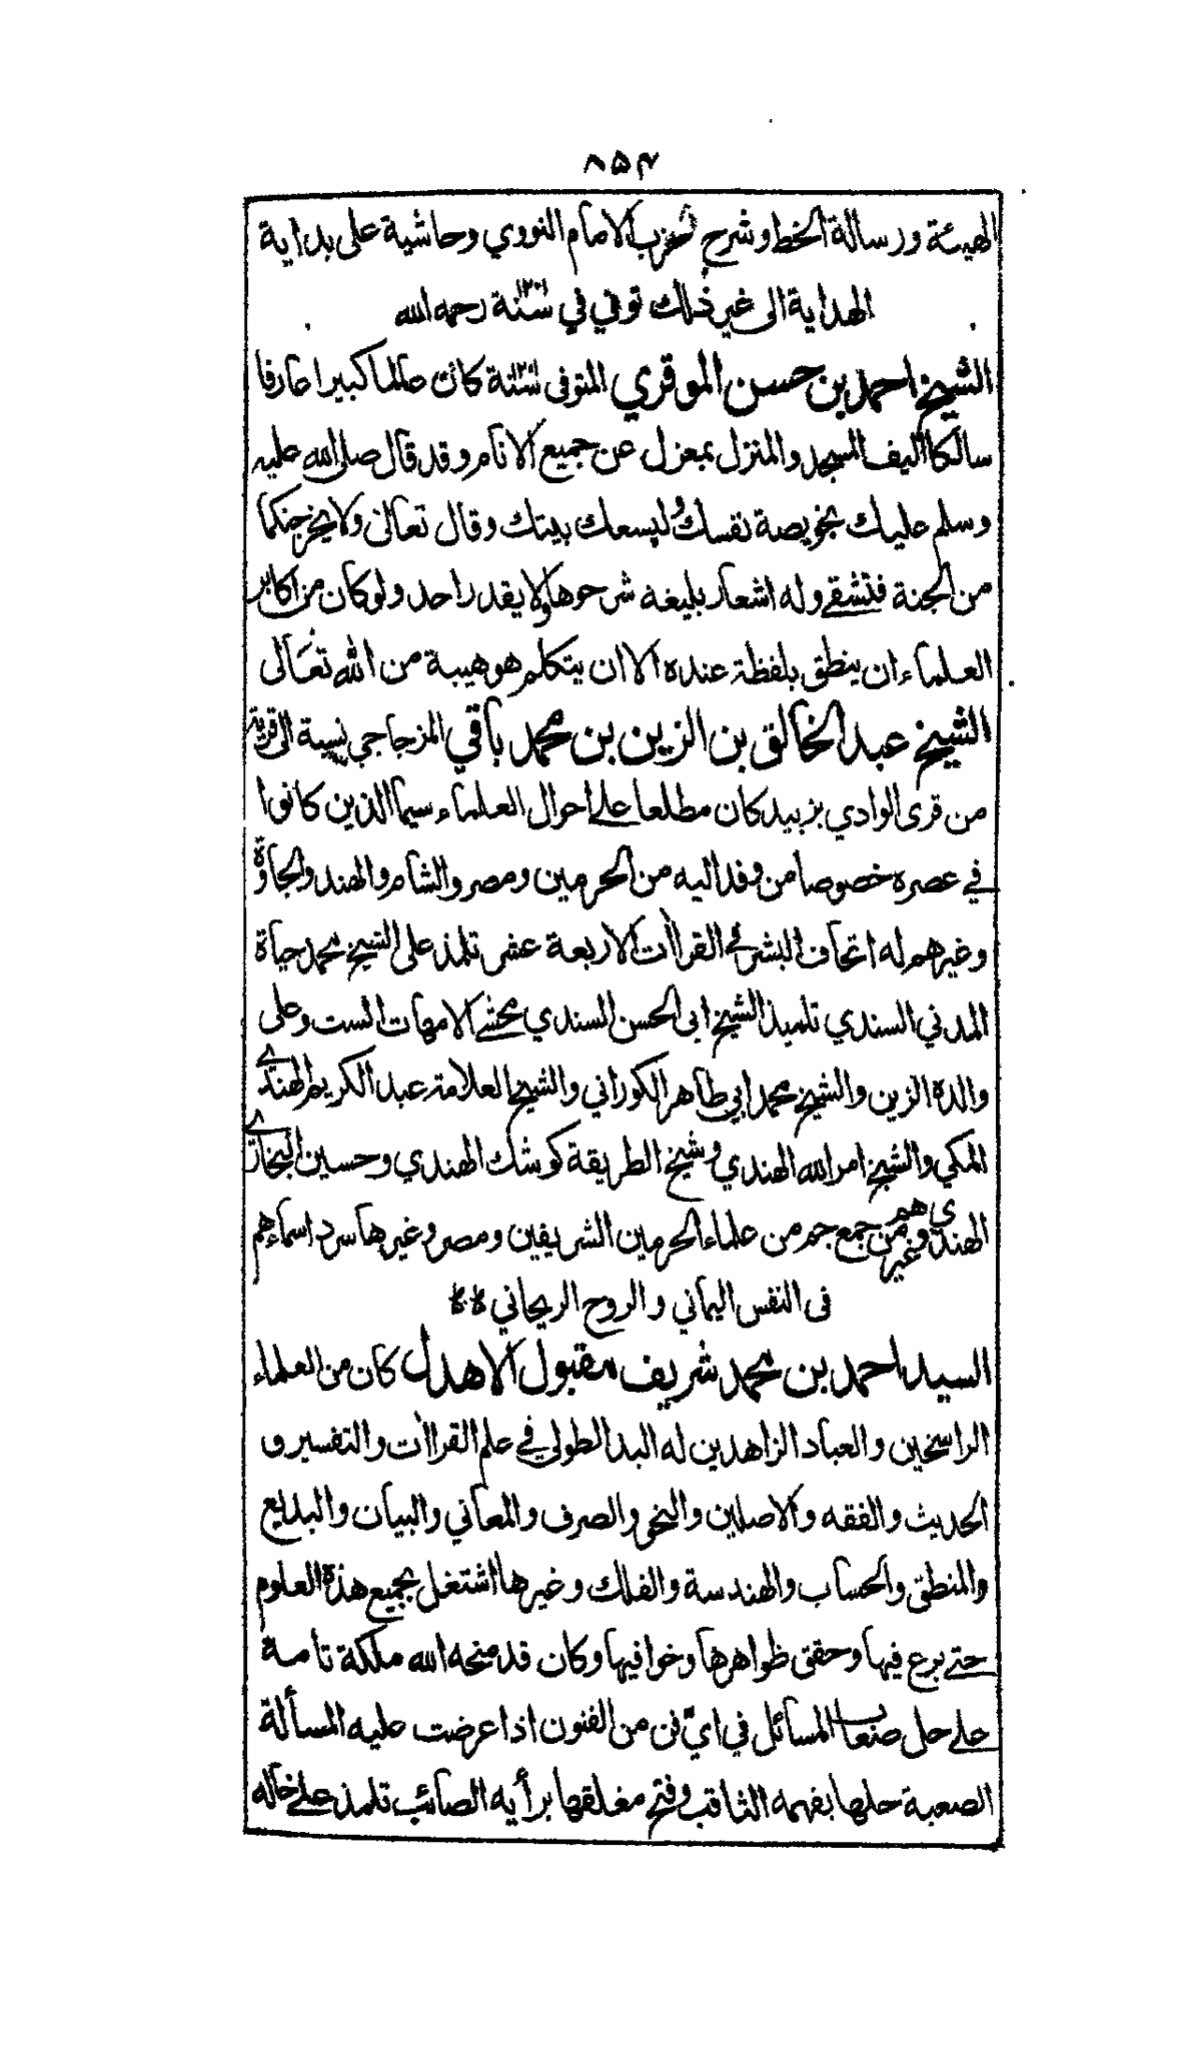 ٨٥٤
الهيئة ورسالة الخط وشرح لحزب الامام النووي وحاشية على بداية
الهداية الى غير ذلك توفي في سنة ١٢٠١ رحمه الله
الشيخ احمد بن حسن الموقري المتوفى سنة كان عالما كبيرا عارفا
سالكا اليف المسجد والمنزل بمعزل عن جميع الانام وقد قال صلى الله عليه
وسلم عليك بخويصة نفسك وليسعك بيتك وقال تعالى ولا يخرجنكما
من الجنة فتشقى وله اشعار بليغه شرحوها ولا يقدر احد ولو كان من اكابر
العلماء ان ينطق بلفظة عنده الا ان يتكلم هو هيبة من الله تعالى
الشيخ عبد الخالق بن الزين بن محمد باقي المزجاجي نسبة الى قرية
من قرى الوادي بزبيد كان مطلعا على احوال العلماء سيما الذين كانوا
في عصره خصوصا من وفد اليه من الحرمين ومصر والشام والهند والجاوة
وغيرهم له اتحاف البشر في القراات الاربعة عشر تلمذ على الشيخ محمد حياة
المدني السندي تلميذ الشيخ ابى الحسن السندي محشي الامهات الست وعلى
والده الزين والشيخ محمد ابي طاهر الكوراني والشيخ العلامة عبد الكريم الهندي
المكي والشيخ امر الله الهندي وشيخ الطريقة كوشك الهندي وحسين البخاري
الهندي وغيرهم من جمع جم من علماء الحرمين الشريفين ومصر وغيرها سرد اسماءهم
فى النفس اليماني والروح الريحاني
السيد احمد بن محمد شريف مقبول الاهدل كان من العلماء
الراسخين والعباد الزاهدين له اليد الطولى في علم القراات والتفسير و
الحديث والفقه والاصلين والنحو والصرف والمعاني والبيان والبديع
والمنطق والحساب والهندسة والفلك وغيرها اشتغل بجميع هذه العلوم
حتى برع فيها وحقق ظواهرها وخوافيها وكان قد منحه الله ملكة تامة
على حل صعاب المسائل في ايّ فن من الفنون اذا عرضت عليه المسألة
الصعبة حلها بفهمه الثاقب وفتح مغلقها برأيه الصائب تلمذ على خاله